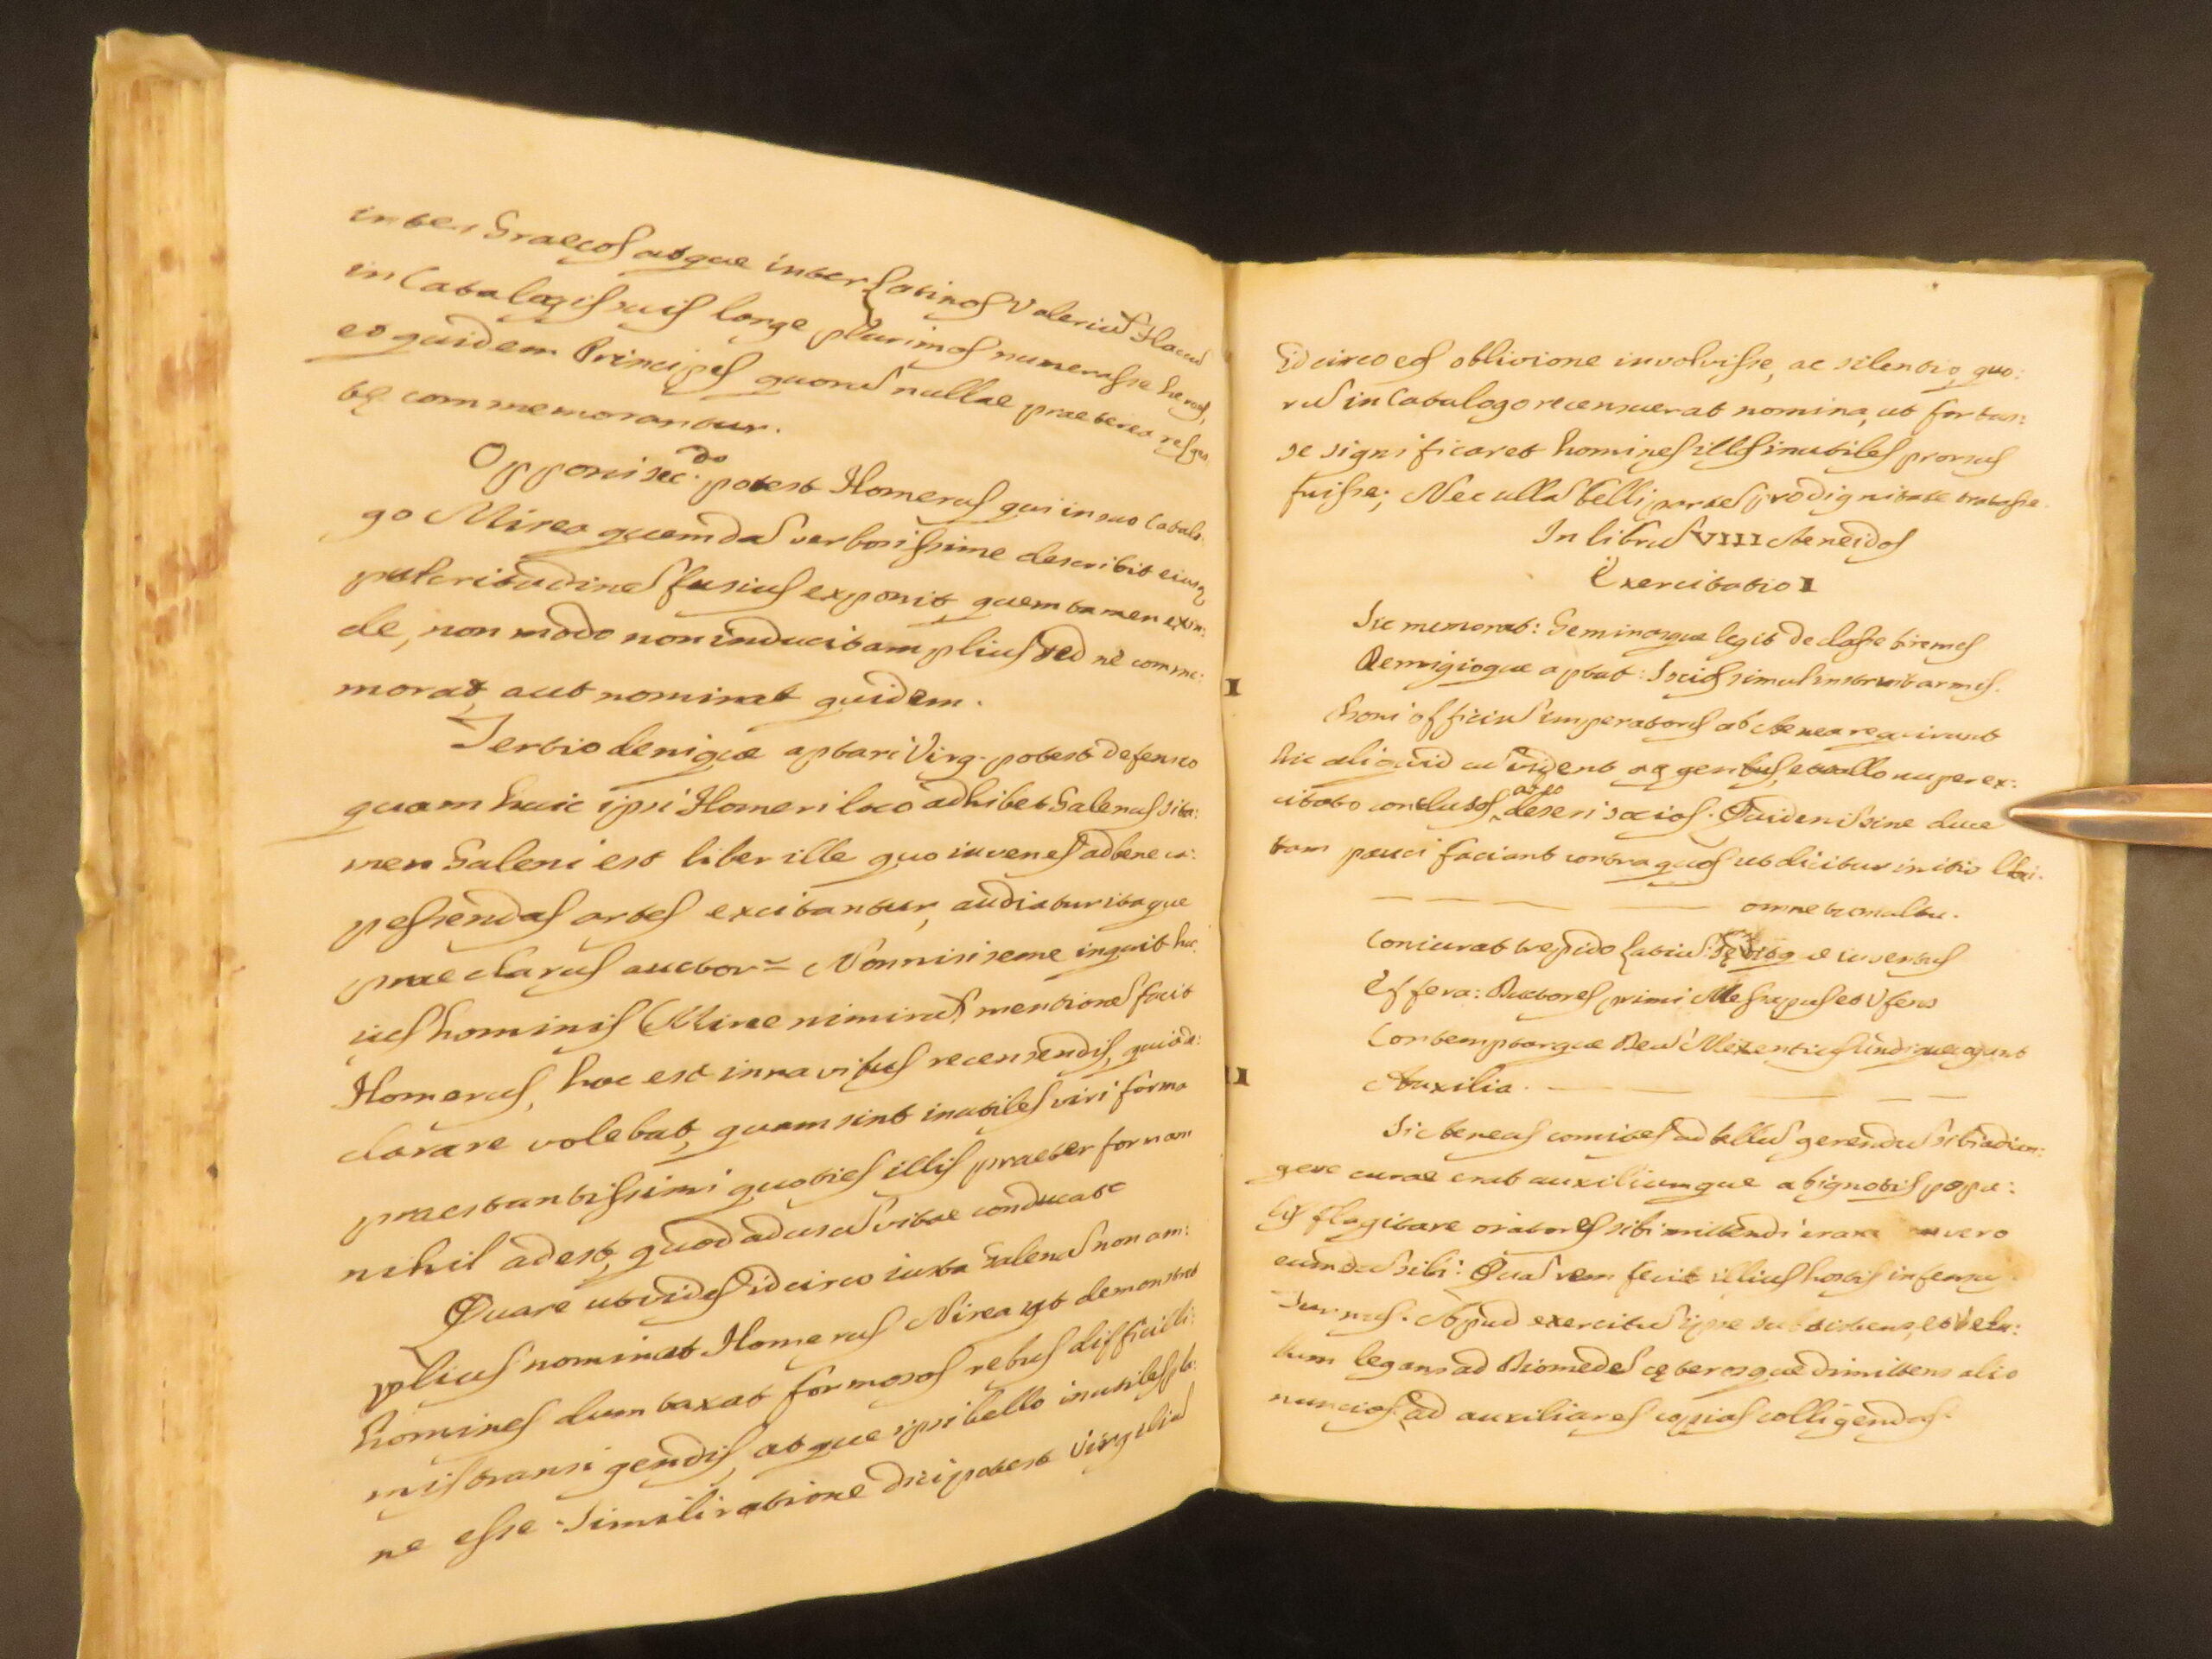 inter Graecos atque inter Latinos Valeriũ Flacũ
in Catalogis suis longe plurimos numerasse heroas,
et quidem Principes quorũ nullae praeterea res ges
tę commemorantur.
Opponi sec.do potest Homerus qui in suo Catalo:
go Nirea quemdã verbosissime describit eiusq
pulcritudinẽ fusius exponit, quem tamen exin:
de, non modo non inducit amplius sed nè comme:
morat, aut nominat quidem.
Tertio denique aptari Virg. potest defensio
quam huic ipsi Homeri loco adhibet Galenus si ta:
men Galeni est liber ille quo iuvenes ad bene ca:
pessendas artes excitantur, audiatur itaque
praeclarus auctor = Non nisi semel inquit hu:
ius hominis (Niree nimirũ) mentionẽ facit
Homerus, hoc est in navibus recensendis, quia de:
clarare volebat, quam sint inutiles viri forma
praestantissimi quoties illis praeter formam
nihil adest, quod ad usũ vitae conducat
Quare ut vides idcirco iuxta Galenũ non am:
plius nominat Homerus Nirea ut demonstret
homines dumtaxat formosos rebus difficili:
mis transigendis, atque ipsi bello inutiles pla:
ne esse. Simili ratione dici potest Virgiliũ
Idcirco eos oblivione involvisse, ac silentio, quo:
rũ in Catalogo recensuerat nomina, ut fortas:
se significaret homines illos inutiles prorsus
fuisse; Nec ullas belli partes pro dignitate tractasse.
In librũ VIII Aeneidos
Exercitatio I
I
Sic memorat: Geminasque legit de classe biremes
Remigioque aptat: Socios simul instruit armis.
Boni officiũ imperatoris ab Aenea requirunt
hic aliquid cũ vident aggeribus, et vallo nuper ex:
citato conclusos, deseri socios. Quid enĩ sine duce
tam pauci faciant contra quos ut dicitur initio libri.
— — — — omne tumultu.
Coniurat trepido Latiũ: sęvitque iuventus
Effera: Ductores primi Messapus et Ufens
Contemptorque Deũ Mezentius undique cogunt
II
Auxilia. — — — — —
Sic Aeneas comites ad bellũ gerendũ sibi adiun:
gere curae erat auxiliumque ab ignotis popu:
lis flagitare oratores sibi mittendi erant vero
eundũ sibi: Quã rem fecit illius hostis infensus
Turnus. Apud exercitũ ipse subsistens, et Venu:
lum legans ad Diomedẽ cęterosque dimittens alio
nuncios, ad auxiliares copias colligendas.